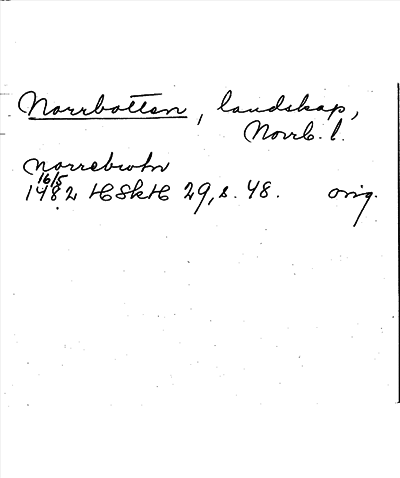 Norrbotten, landskap,
Norrb. l.
Norrebwtn
16/5
1482 HSkH 29, s. 48. orig.